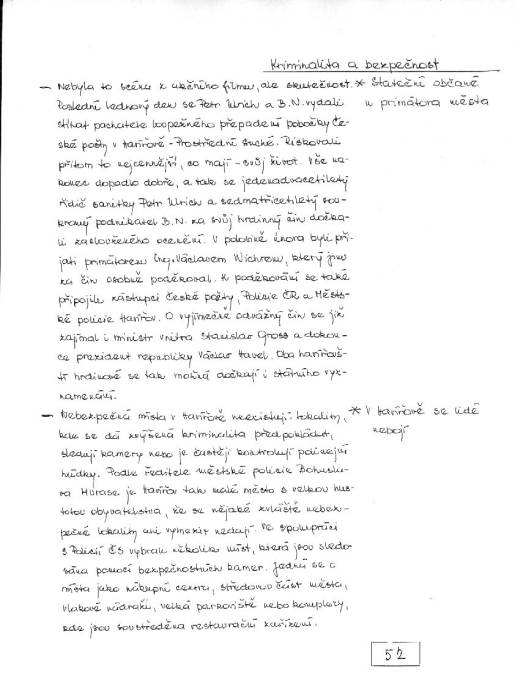 Kriminalita a bezpečnost
– Nebyla to scéna z akčního filmu, ale skutečnost. * Stateční občané
Poslední lednový den se Petr Ulrich a B.N. vydali u primátora města
stíhat pachatele loupežného přepadení pobočky Če-
ské pošty v Havířově - Prostřední Suché. Riskovali
přitom to nejcennější, co mají - svůj život. Vše na-
konec dopadlo dobře, a tak se jedenadvacetiletý
řidič sanitky Petr Ulrich a sedmatřicetiletý sou-
kromý podnikatel B.N. za svůj hrdinný čin dočka-
li zaslouženého ocenění. V polovině února byli při-
jati primátorem Ing. Václavem Wichrem, který jim
za čin osobně poděkoval. K poděkování se také
připojili zástupci České pošty, Policie ČR a Městs-
ké policie Havířov. O vyjímečně odvážný čin se již
zajímal i ministr vnitra Stanislav Gross a dokon-
ce prezident republiky Václav Havel. Oba havířovš-
tí hrdinové se tak možná dočkají i státního vyz-
namenání.
– Nebezpečná místa v Havířově neexistují. Lokality, * V Havířově se lidé
kde se dá zvýšená kriminalita předpokládat, nebojí
sledují kamery nebo je častěji kontrolují policejní
hlídky. Podle ředitele městské policie Bohusla-
va Muras je Havířov tak malé město s velkou hus-
totou obyvatelstva, že se nějaké zvláště nebez-
pečné lokality ani vymezit nedají. Ve spolupráci
s Policií ČS vybrali několik míst, která jsou sledo-
vána pomocí bezpečnostních kamer. Jedná se o
místa jako nákupní centra, středovou část města,
vlakové nádraží, velká parkoviště nebo komplexy,
kde jsou soustředěna restaurační zařízení.
52